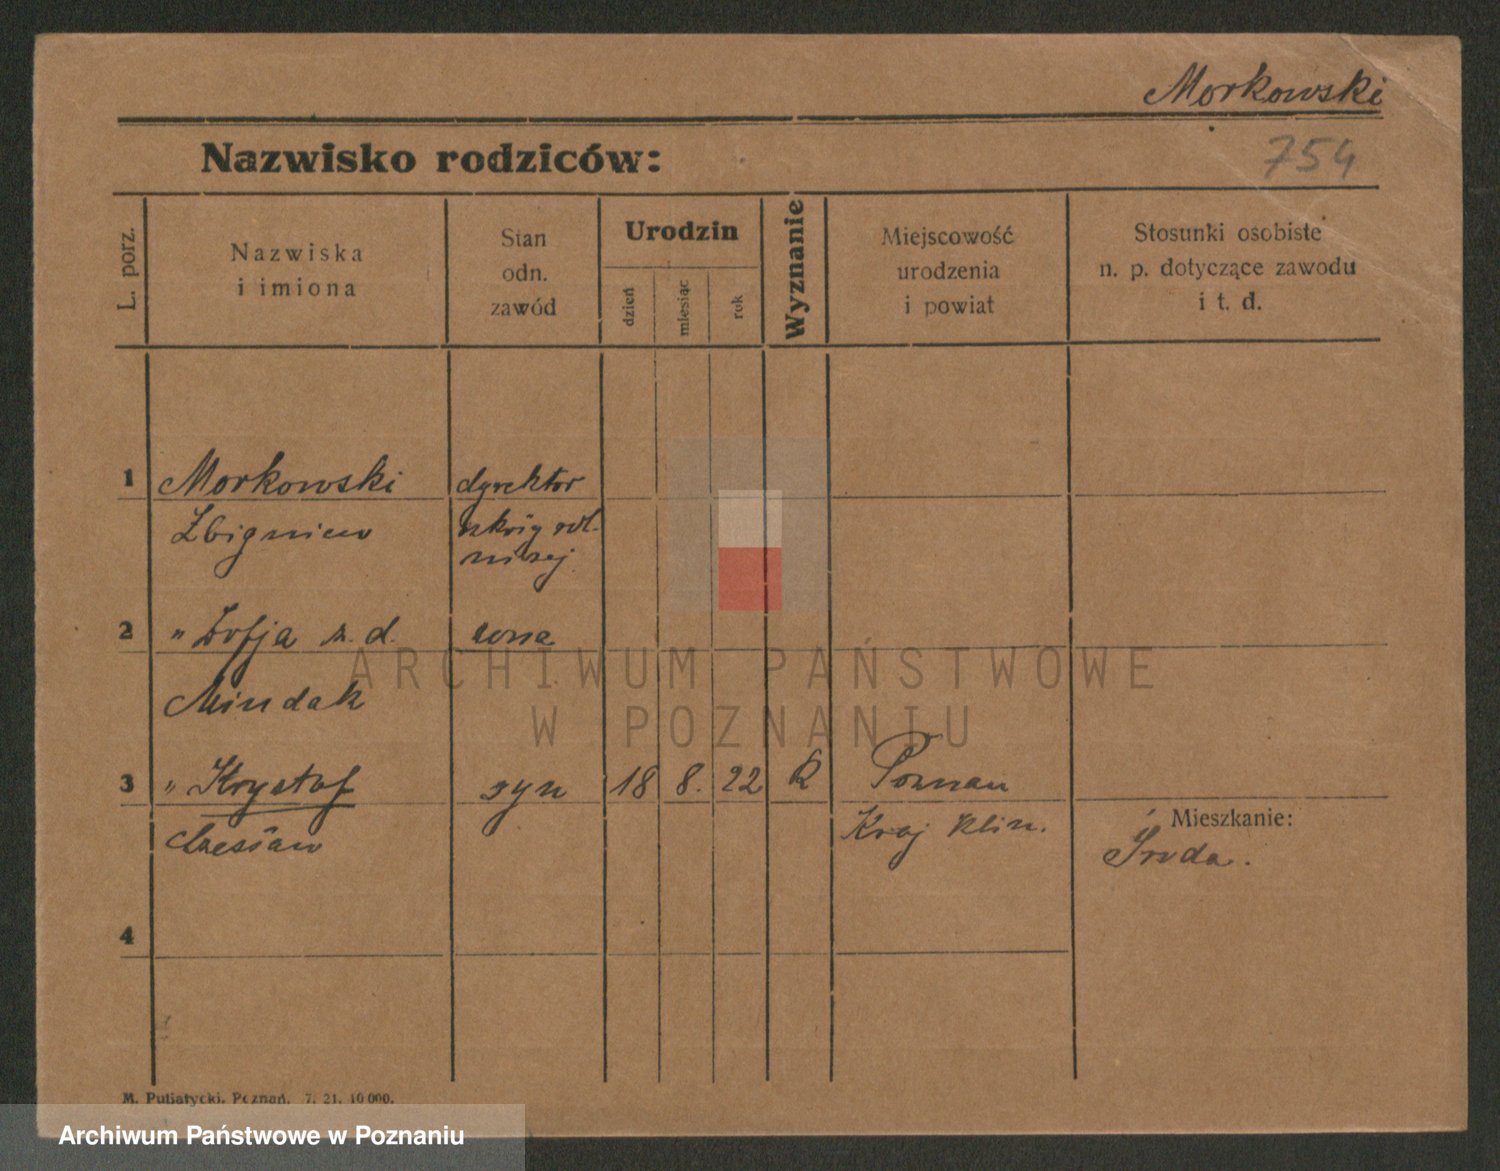 Morkowski
Nazwisko rodziców:
754
L. porz.
Nazwiska
i imiona
Stan
odn.
zawód
Urodzin
dzień
miesiąc
rok
Wyznanie
Miejscowość
urodzenia
i powiat
Stosunki osobiste
n. p. dotyczące zawodu
i t. d.
1
Morkowski
dyrektor
Zbigniew
2
" Zofja z. d.
żona
Mindak
ARCHIWUM PAŃSTWOWE
W POZNANIU
3
" Krystof
syn
18
8.
22
K
Poznań
Czesław
Kraj
Mieszkanie:
Środa.
4
M. Putiatycki, Poznań. 7. 21. 10 000.
Archiwum Państwowe w Poznaniu